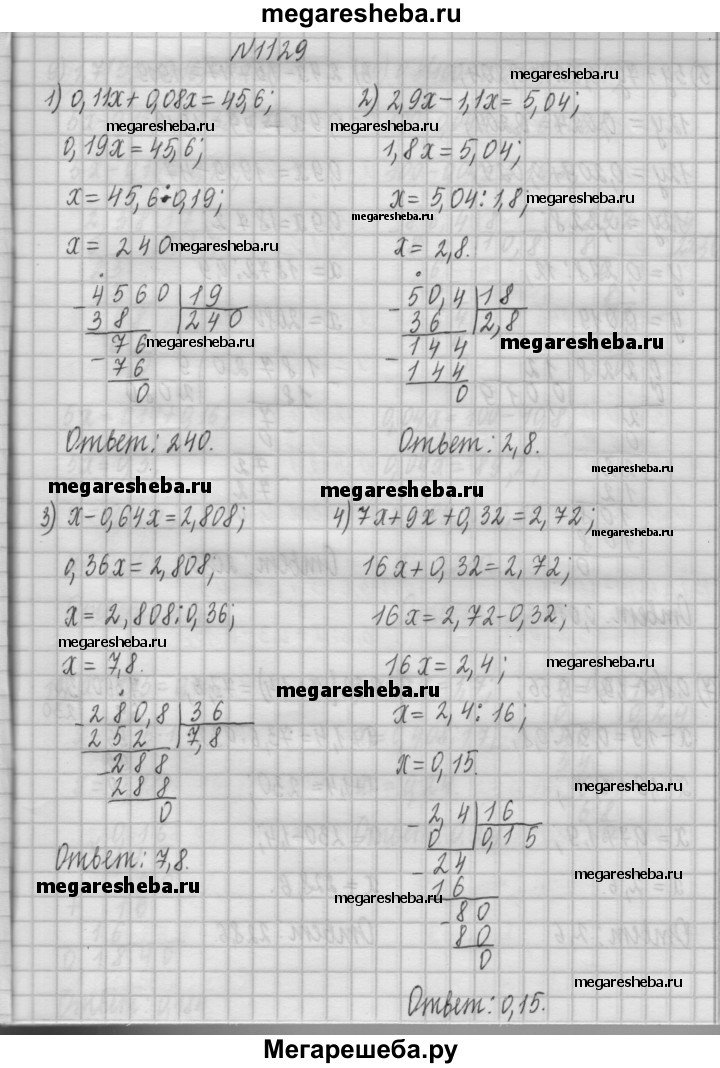 megaresheba.ru
N1129
megaresheba.ru
1) 0,11x + 0,08x = 45,6;
megaresheba.ru
0,19x = 45,6;
x = 45,6:0,19;
x = 240
megaresheba.ru
4560 | 19
38 | 240
76
megaresheba.ru
76
0
Ответ: 240.
2) 2,9x - 1,1x = 5,04;
megaresheba.ru
1,8x = 5,04;
x = 5,04 : 1,8;
megaresheba.ru
megaresheba.ru
x = 2,8.
50,4 | 18
36 | 2,8
144
megaresheba.ru
144
0
Ответ: 2,8.
megaresheba.ru
megaresheba.ru
3) x - 0,64x = 2,808;
0,36x = 2,808;
x = 2,808:0,36;
megaresheba.ru
x = 7,8.
megaresheba.ru
280,8 | 36
252 | 7,8
288
288
0
Ответ: 7,8.
megaresheba.ru
4) 7x + 9x + 0,32 = 2,72;
megaresheba.ru
16x + 0,32 = 2,72;
16x = 2,72 - 0,32;
16x = 2,4;
megaresheba.ru
x = 2,4 : 16;
x = 0,15.
megaresheba.ru
2,4 | 16
0 | 0,15
24
megaresheba.ru
16
megaresheba.ru
80
80
0
megaresheba.ru
Ответ: 0,15.
Мегарешеба.ру